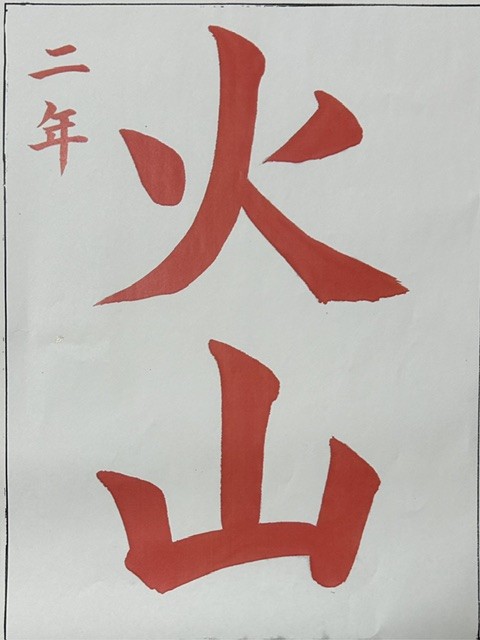 火山
二年